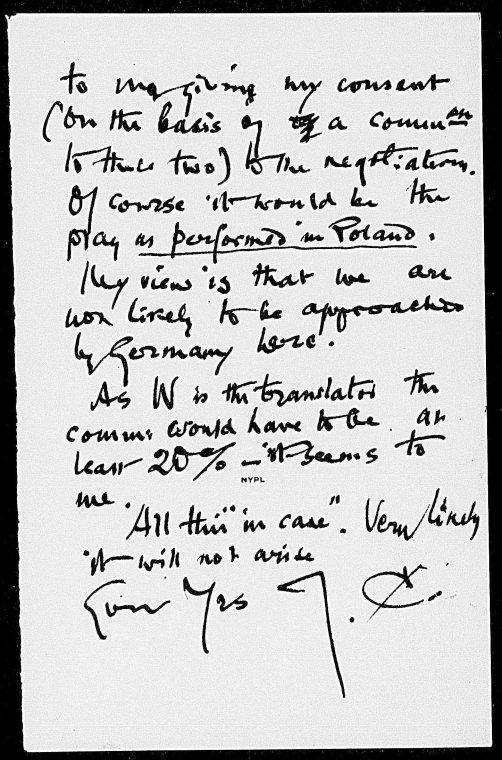 to my giving my consent
(on the basis of a comm^on
to these two) to the negotiations.
Of course it would be the
play as performed in Poland.
My view is that we are
not likely to be approached
by Germany here.
As W is the translator the
commn: would have to be at
least 20% – it seems to
NYPL
me.
"All this" in case". Very likely
it will not arise
Yrs J. C.